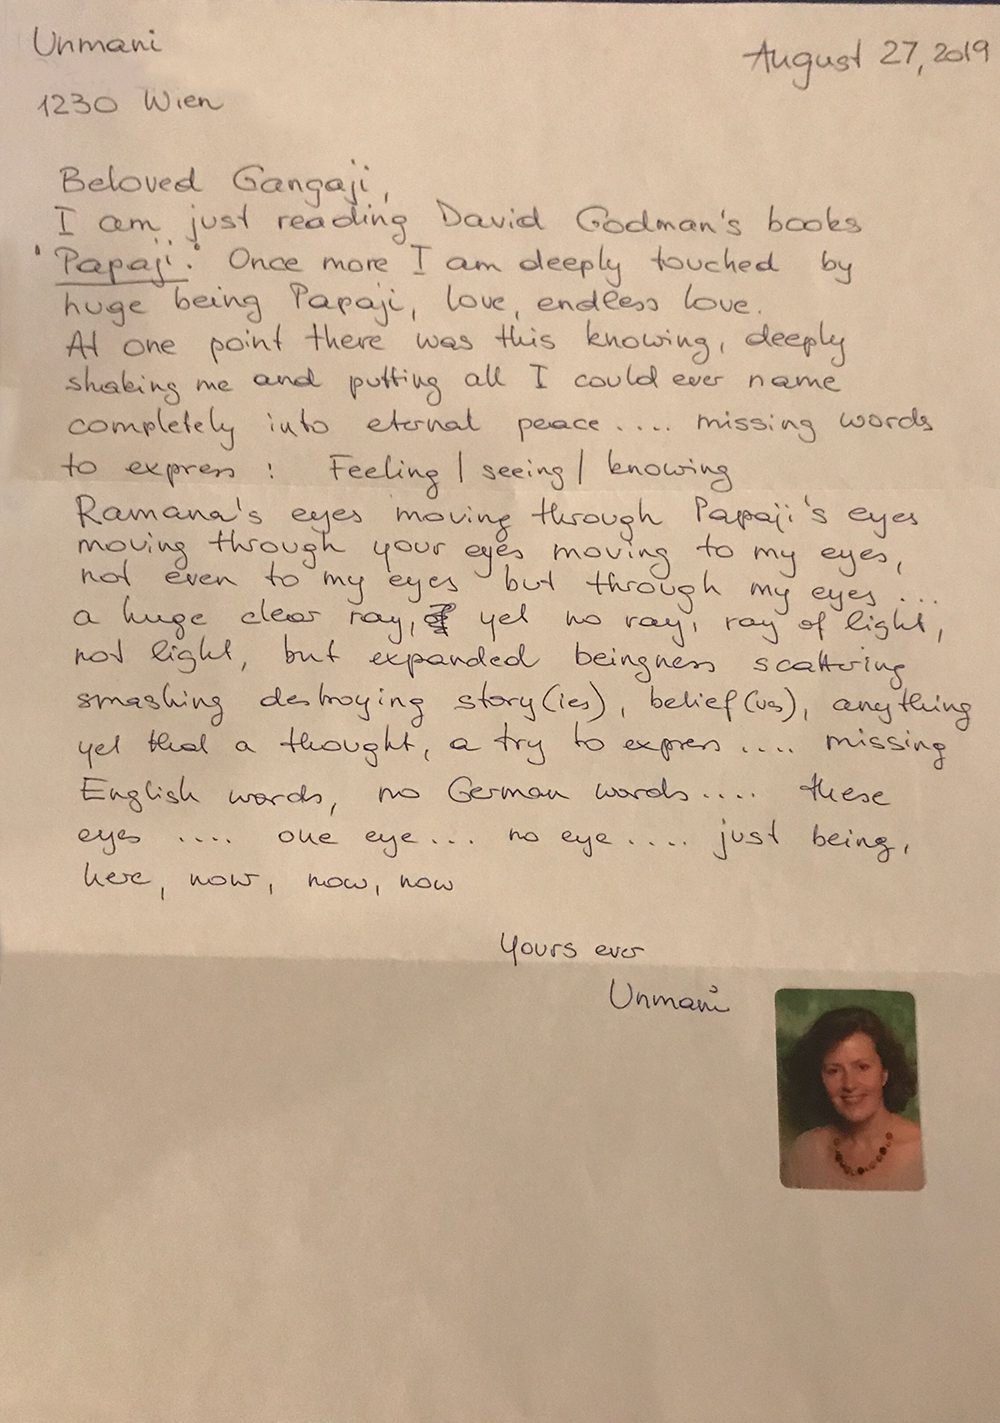 Unmani
August 27, 2019
1230 Wien
Beloved Gangaji,
I am just reading David Godman's books
'Papaji'. Once more I am deeply touched by
huge being Papaji, love, endless love.
At one point there was this knowing, deeply
shaking me and putting all I could ever name
completely into eternal peace .... missing words
to express : Feeling / seeing / knowing
Ramana's eyes moving through Papaji's eyes
moving through your eyes moving to my eyes,
not even to my eyes but through my eyes ...
a huge clear ray, yet no ray, ray of light,
not light, but expanded beingness scattering
smashing destroying story(ies), belief(ves), anything
yet that a thought, a try to express .... missing
English words, no German words .... these
eyes .... one eye... no eye .... just being,
here, now, now, now
Yours ever
Unmani